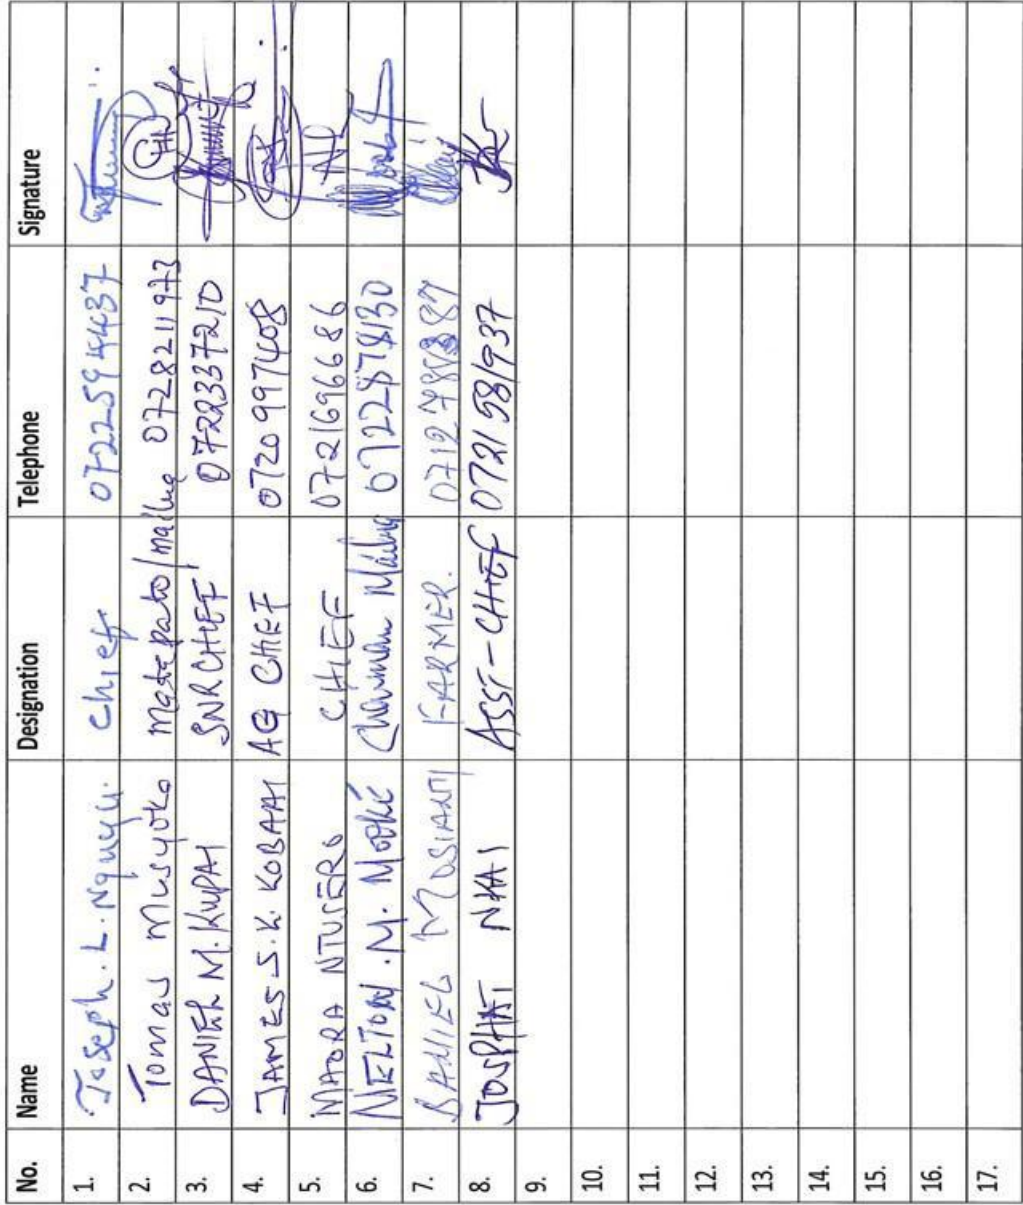 No. Name Designation Telephone Signature
1. Joseph. L. Nguyu. Chief 0722594437
2. Tomas Musyoko Matapato/Mailua 0728211973
3. DANIEL M. KUPAI SNR CHIEF 0722337210
4. JAMES S. K. KOBAAI AG CHIEF 0720997408
5. MAORA NTUSERO CHIEF 0721696686
6. MELTON .M. Chairman Mailua 0722878130
7. FARMER.
8. JOSPHAT NKAI ASST-CHIEF 0721581937
9.
10.
11.
12.
13.
14.
15.
16.
17.